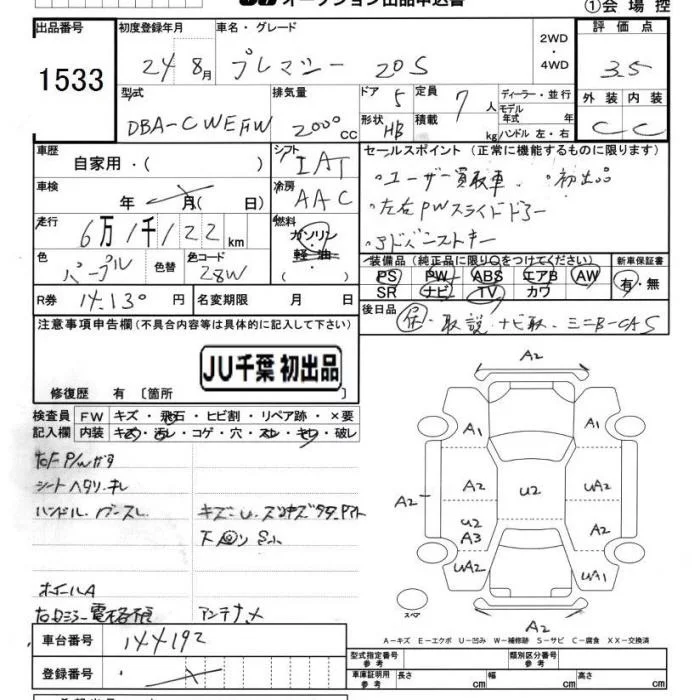 オークション出品申込書
①会場控
出品番号 初度登録年月 車名・グレード 2WD・4WD 評価点
1533 24 8月 プレマシー 20S 3.5
型式 排気量 ドア 5 定員 7人 ディーラー・並行 外装 内装
モデル年式 年
DBA-CWEFW 2000cc 形状 HB 積載 kg ハンドル 左・右 C C
車歴 自家用・( ) シフト IAT セールスポイント (正常に機能するものに限ります)
車検 年 月( 日) 冷房 AAC 。ユーザー買取車 。初出品
走行 6万1千122km 燃料 ガソリン・軽油・( ) 。左右PWスライドドアー
色 パープル 色替 色コード 28W 。アドバンストキー
装備品(純正品に限り○をつけてください) 新車保証書
PS PW ABS エアB AW 有・無
SR ナビ TV カワ
R券 14,130円 名変期限 月 日
後日品 保・取説・ナビ取・ミニB-CAS
注意事項申告欄(不具合内容等は具体的に記入して下さい)
JU千葉 初出品
修復歴 有〔箇所 〕
検査員 FW キズ・飛石・ヒビ割・リペア跡・×要
記入欄 内装 キズ・汚レ・コゲ・穴・スレ・キレ・破レ
右F P/Wガタ
シートヘタリ・キレ
ハンドル・
下回りサビ小
ホイールA
アンテナ
A2
A1 A1
A2 A2 U2 UA2
U2 A3 A2
UA2 UA1
スペア
A2
A-キズ E-エクボ U-凹み W-補修跡 S-サビ C-腐食 XX-交換済
車台番号 144192
登録番号
型式指定番号 参考 類別区分番号 参考
車庫証明用 参考 長さ cm 幅 cm 高さ cm